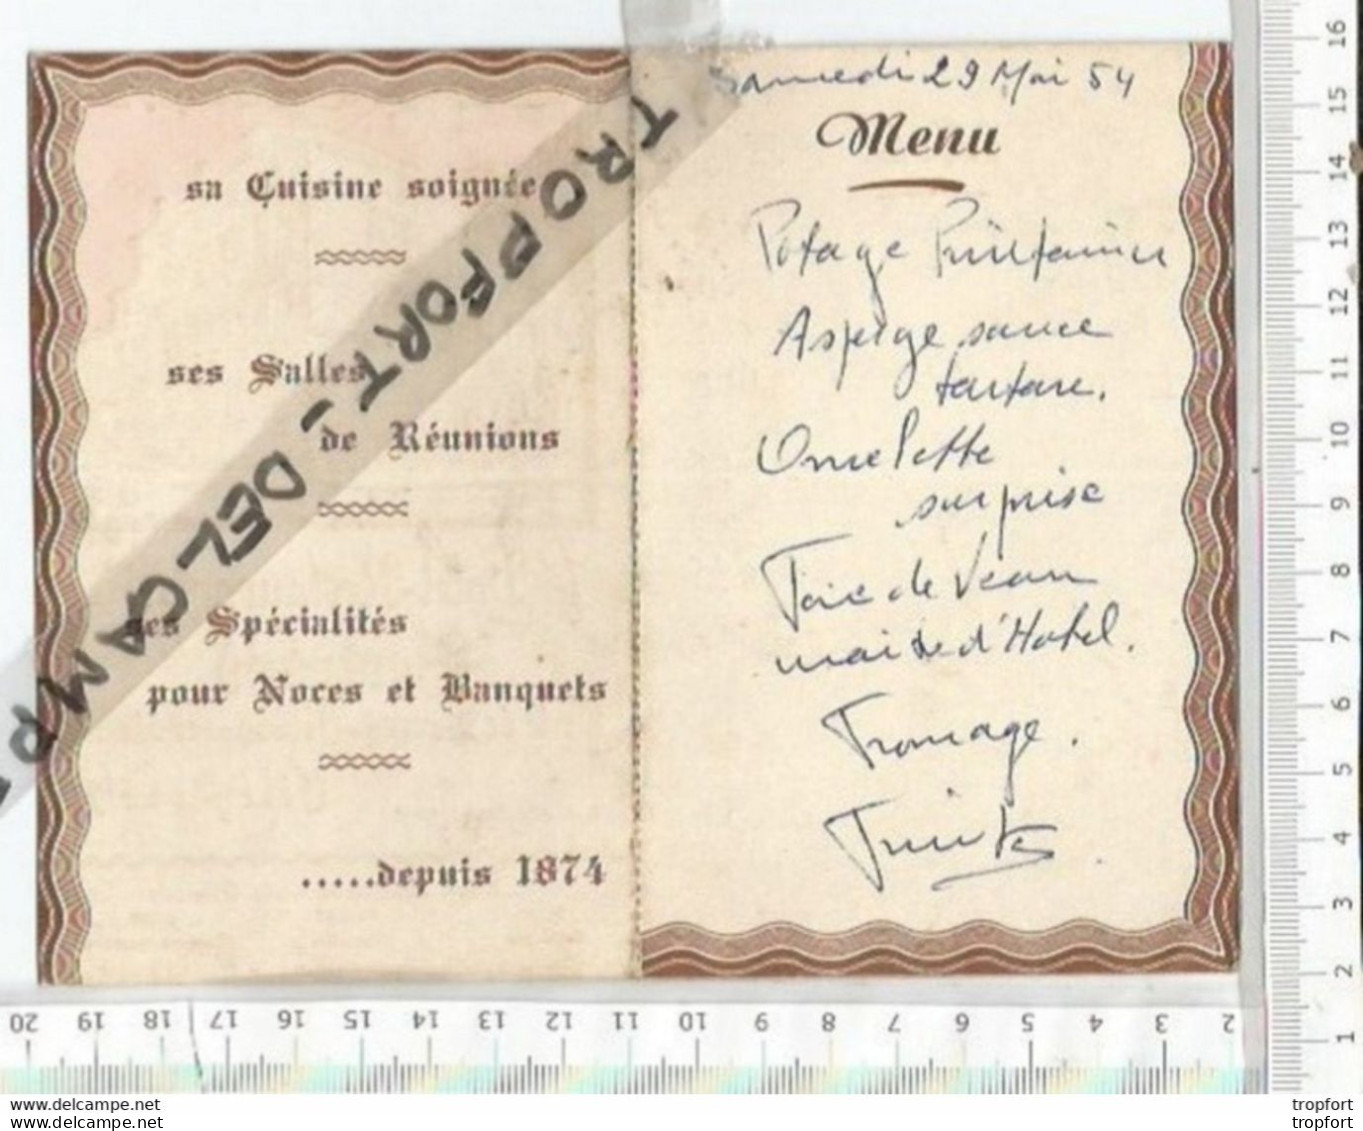 sa Cuisine soignée
ses Salles
de Réunions
ses Spécialités
pour Noces et Banquets
.....depuis 1874
TROPFORT-DELCAMP-
Samedi 29 Mai 54
Menu
Potage Printanier
Asperge sauce
tartare.
Omelette
surprise
Foie de Veau
maitre d'Hotel.
Fromage.
Fruits
16
15
14
13
12
11
10
9
8
7
6
5
4
3
2
1
20 19 18 17 16 15 14 13 12 11 10 9 8 7 6 5 4 3 2
delcampe.net
www.delcampe.net
tropfort
tropfort